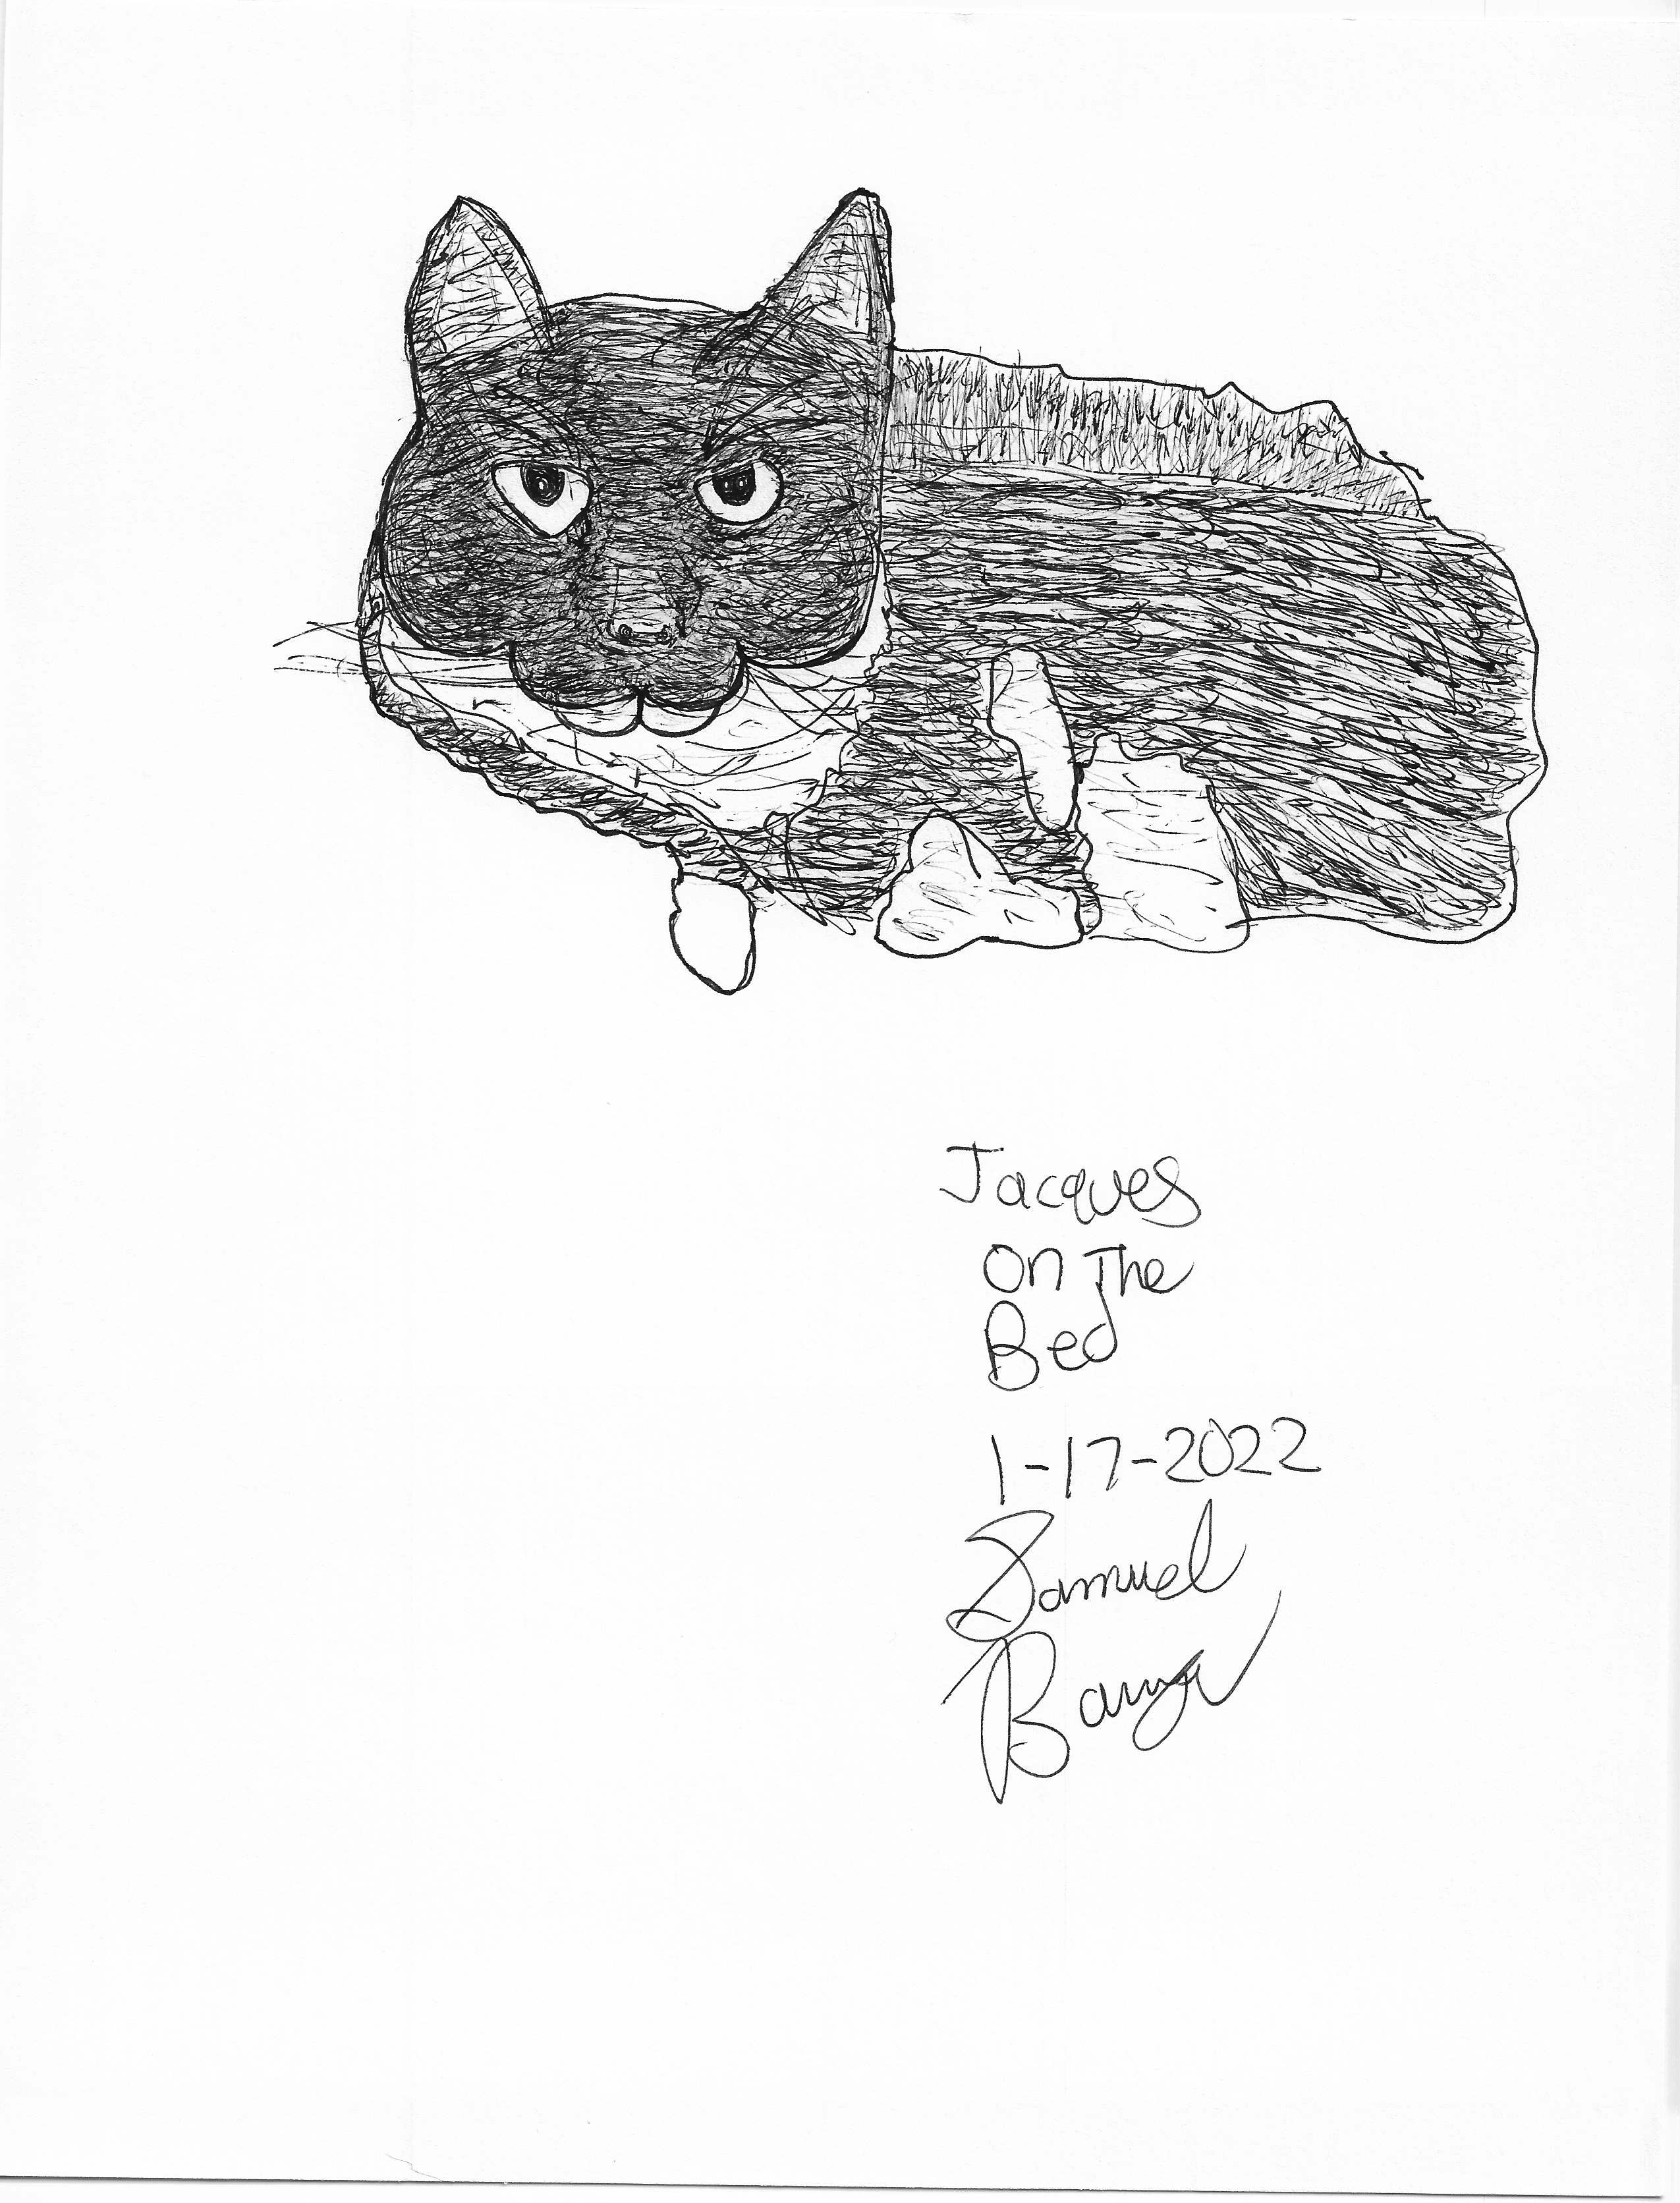 Jacques
on The
Bed
1-17-2022
Samuel